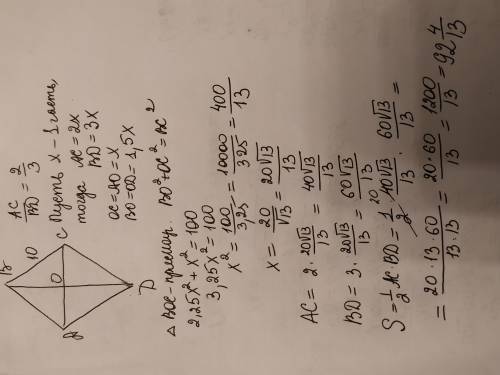 B
10
A
O
C
D
AC/BD = 2/3
Пусть x - 1 часть,
тогда AC = 2x
BD = 3x
OC = AO = x
BO = OD = 1,5x
△ BOC - прямоуг. BO² + OC² = BC²
2,25x² + x² = 100
3,25x² = 100
x² = 100/3,25 = 10000/325 = 400/13
x = 20/√13 = 20√13/13
AC = 2 · 20√13/13 = 40√13/13
BD = 3 · 20√13/13 = 60√13/13
S = 1/2 AC · BD = 1/2 · 40√13/13 · 60√13/13 =
20
= 20·13·60/13·13 = 20·60/13 = 1200/13 = 92 4/13